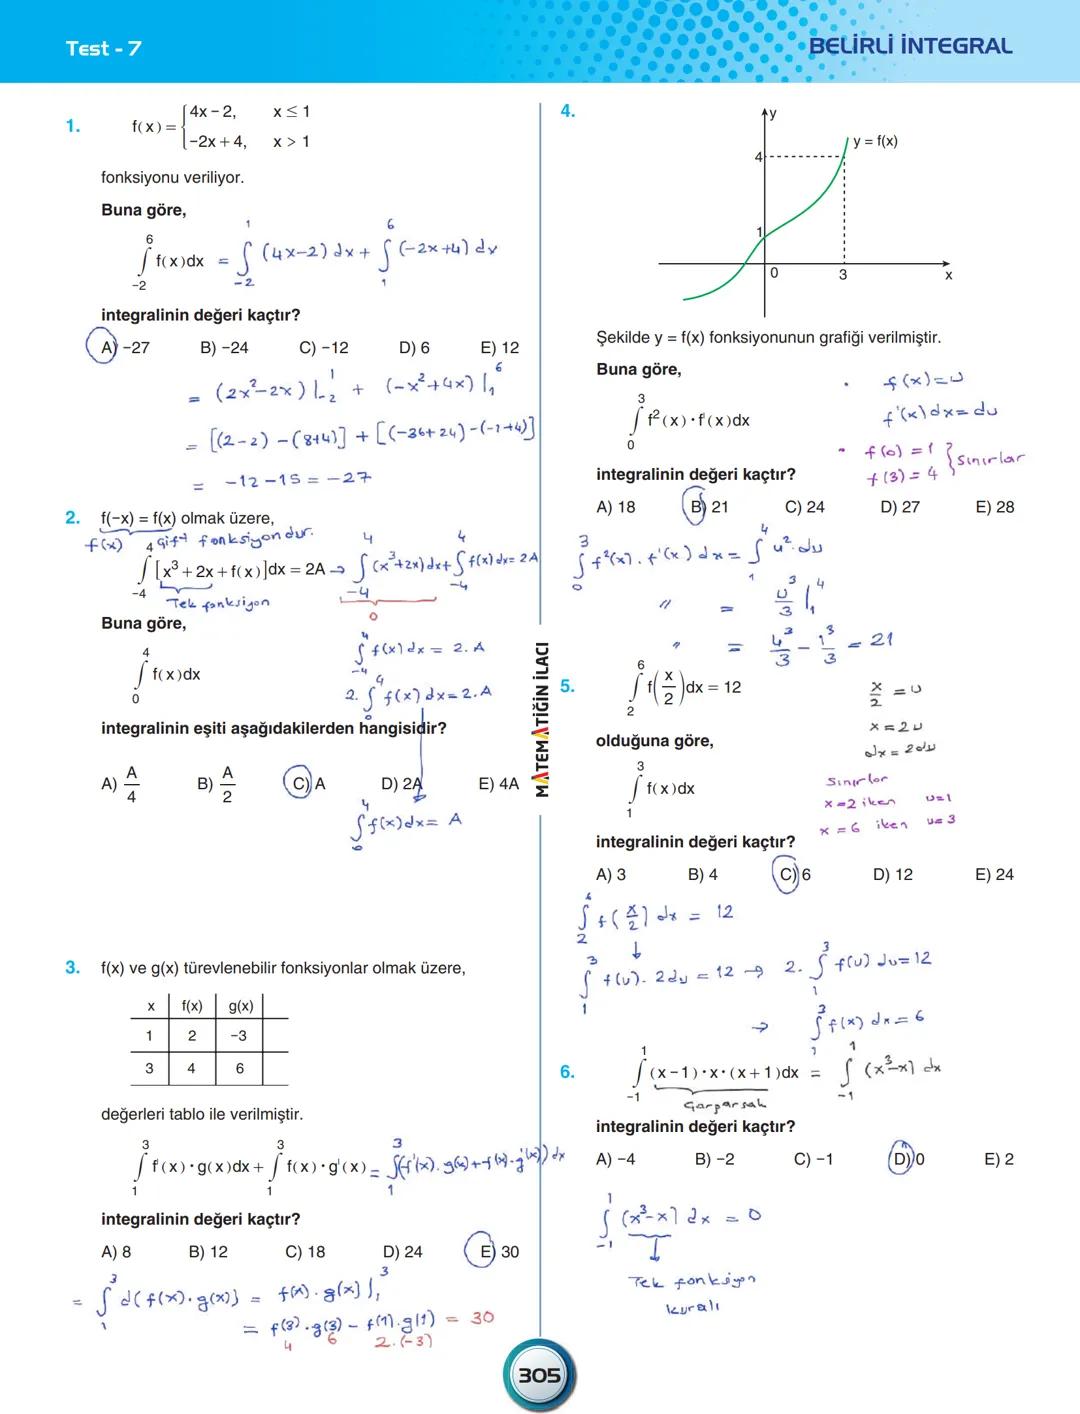 Test - 7
BELİRLİ İNTEGRAL
1. f(x) = { 4x – 2, x ≤ 1
–2x + 4, x > 1
fonksiyonu veriliyor.
Buna göre,
∫_{-2}^{6} f(x)dx = ∫_{-2}^{1} (4x-2) dx + ∫_{1}^{6} (-2x+4) dx
integralinin değeri kaçtır?
A) –27 B) –24 C) –12 D) 6 E) 12
= (2x²-2x) |_{-2}^{1} + (-x²+4x) |_{1}^{6}
= [(2-2) - (8+4)] + [(-36+24) - (-1+4)]
= -12 -15 = -27
2. f(–x) = f(x) olmak üzere,
f(x) çift fonksiyondur.
∫_{-4}^{4} [x³ + 2x + f(x)]dx = 2A → ∫_{-4}^{4} (x³+2x) dx + ∫_{-4}^{4} f(x) dx = 2A
Tek fonksiyon
0
Buna göre,
∫_{-4}^{4} f(x) dx = 2. A
∫_{0}^{4} f(x)dx
2. ∫_{0}^{4} f(x) dx = 2. A
integralinin eşiti aşağıdakilerden hangisidir?
A) A/4 B) A/2 C) A D) 2A E) 4A
∫_{0}^{4} f(x) dx = A
3. f(x) ve g(x) türevlenebilir fonksiyonlar olmak üzere,
x f(x) g(x)
1 2 –3
3 4 6
değerleri tablo ile verilmiştir.
∫_{1}^{3} f'(x)·g(x)dx + ∫_{1}^{3} f(x)·g'(x) = ∫_{1}^{3} (f'(x). g(x) + f(x). g'(x)) dx
integralinin değeri kaçtır?
A) 8 B) 12 C) 18 D) 24 E) 30
= ∫_{1}^{3} d(f(x). g(x)) = f(x). g(x) |_{1}^{3}
= f(3). g(3) - f(1). g(1) = 30
4 6 2. (-3)
MATEMATİĞİN İLACI
4.
y
y = f(x)
4
1
0 3 x
Şekilde y = f(x) fonksiyonunun grafiği verilmiştir.
Buna göre,
• f(x) = u
∫_{0}^{3} f²(x)·f'(x)dx
f'(x) dx = du
• f(0) = 1
f(3) = 4 } sınırlar
integralinin değeri kaçtır?
A) 18 B) 21 C) 24 D) 27 E) 28
∫_{0}^{3} f²(x). f'(x) dx = ∫_{1}^{4} u². du
" = u³/3 |_{1}^{4}
" = 4³/3 - 1³/3 = 21
5. ∫_{2}^{6} f(x/2)dx = 12
x/2 = u
x = 2u
dx = 2du
olduğuna göre,
∫_{1}^{3} f(x)dx
Sınırlar
x = 2 iken u = 1
x = 6 iken u = 3
integralinin değeri kaçtır?
A) 3 B) 4 C) 6 D) 12 E) 24
∫_{2}^{6} f(x/2) dx = 12
∫_{1}^{3} f(u). 2du = 12 → 2. ∫_{1}^{3} f(u) du = 12
→ ∫_{1}^{3} f(x) dx = 6
6. ∫_{-1}^{1} (x – 1)·x·(x + 1)dx = ∫_{-1}^{1} (x³-x) dx
Çarparsak
integralinin değeri kaçtır?
A) –4 B) –2 C) –1 D) 0 E) 2
∫_{-1}^{1} (x³-x) dx = 0
Tek fonksiyon
kuralı
305